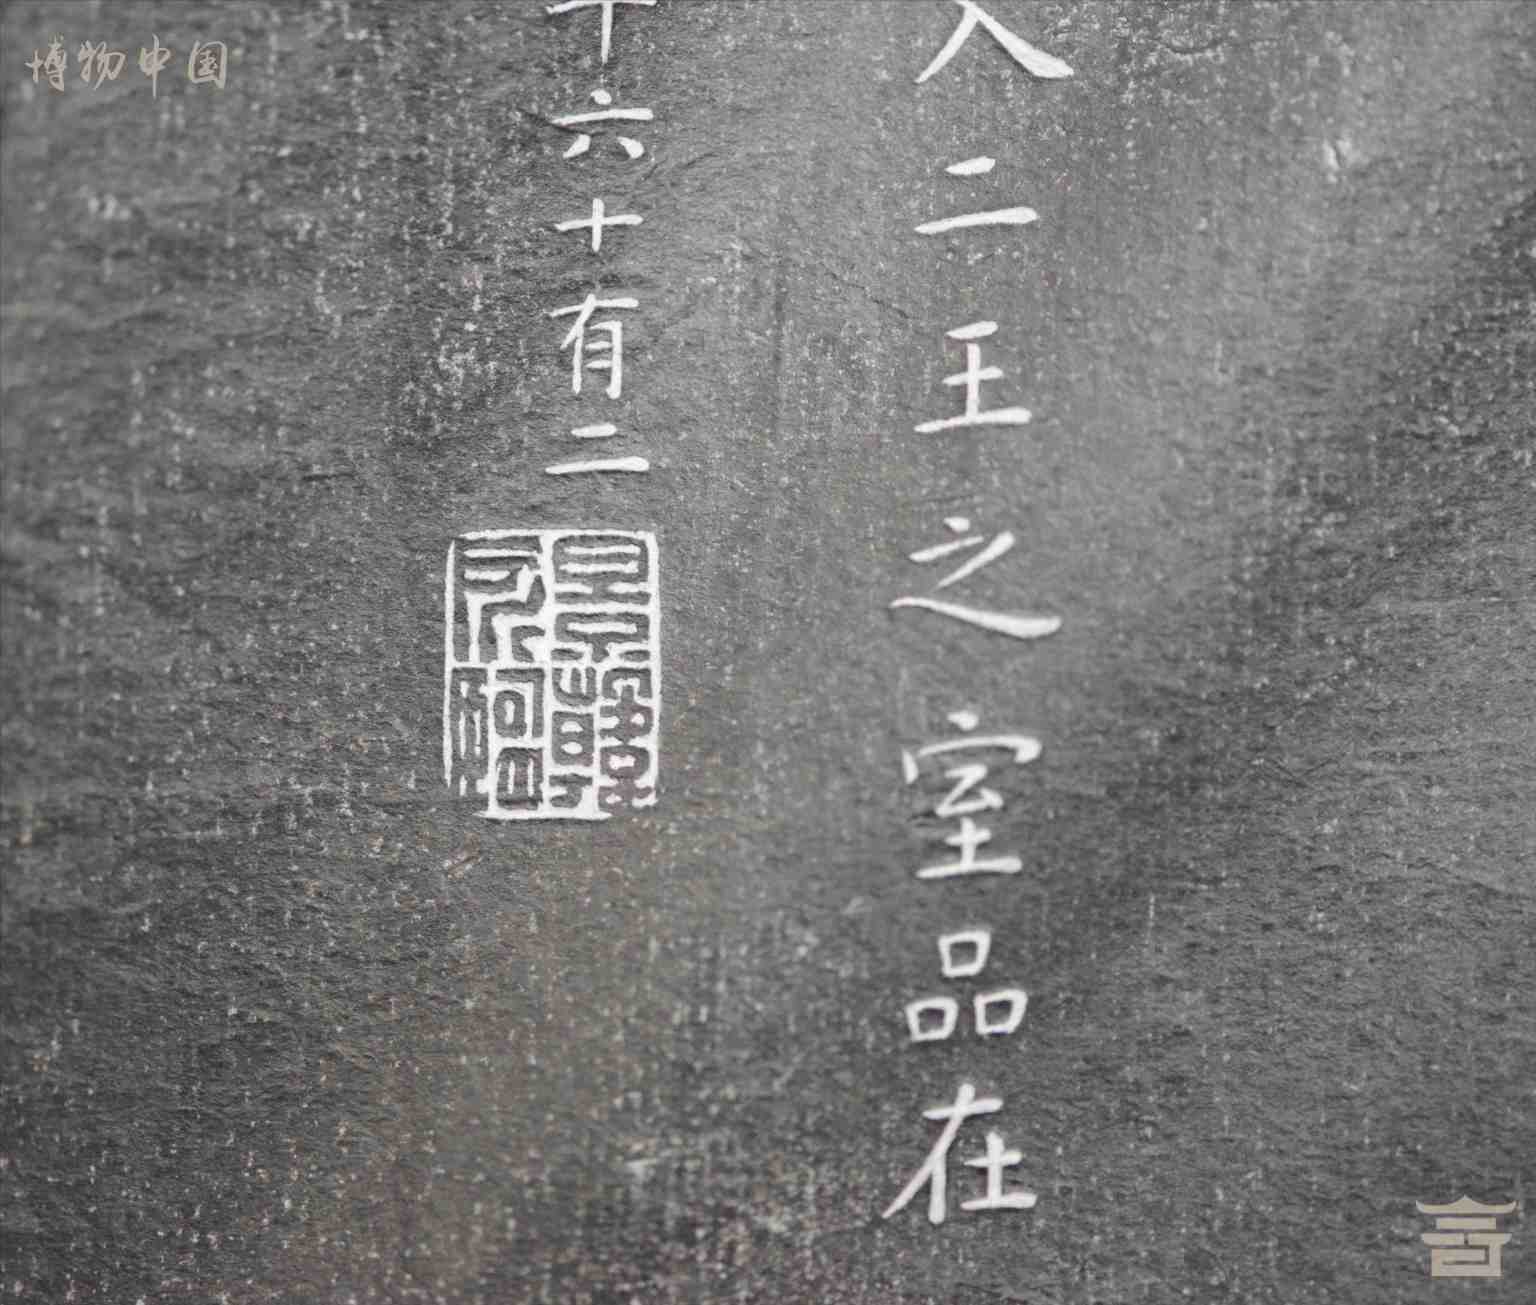 博物中国
入二王之室品在
年六十有二